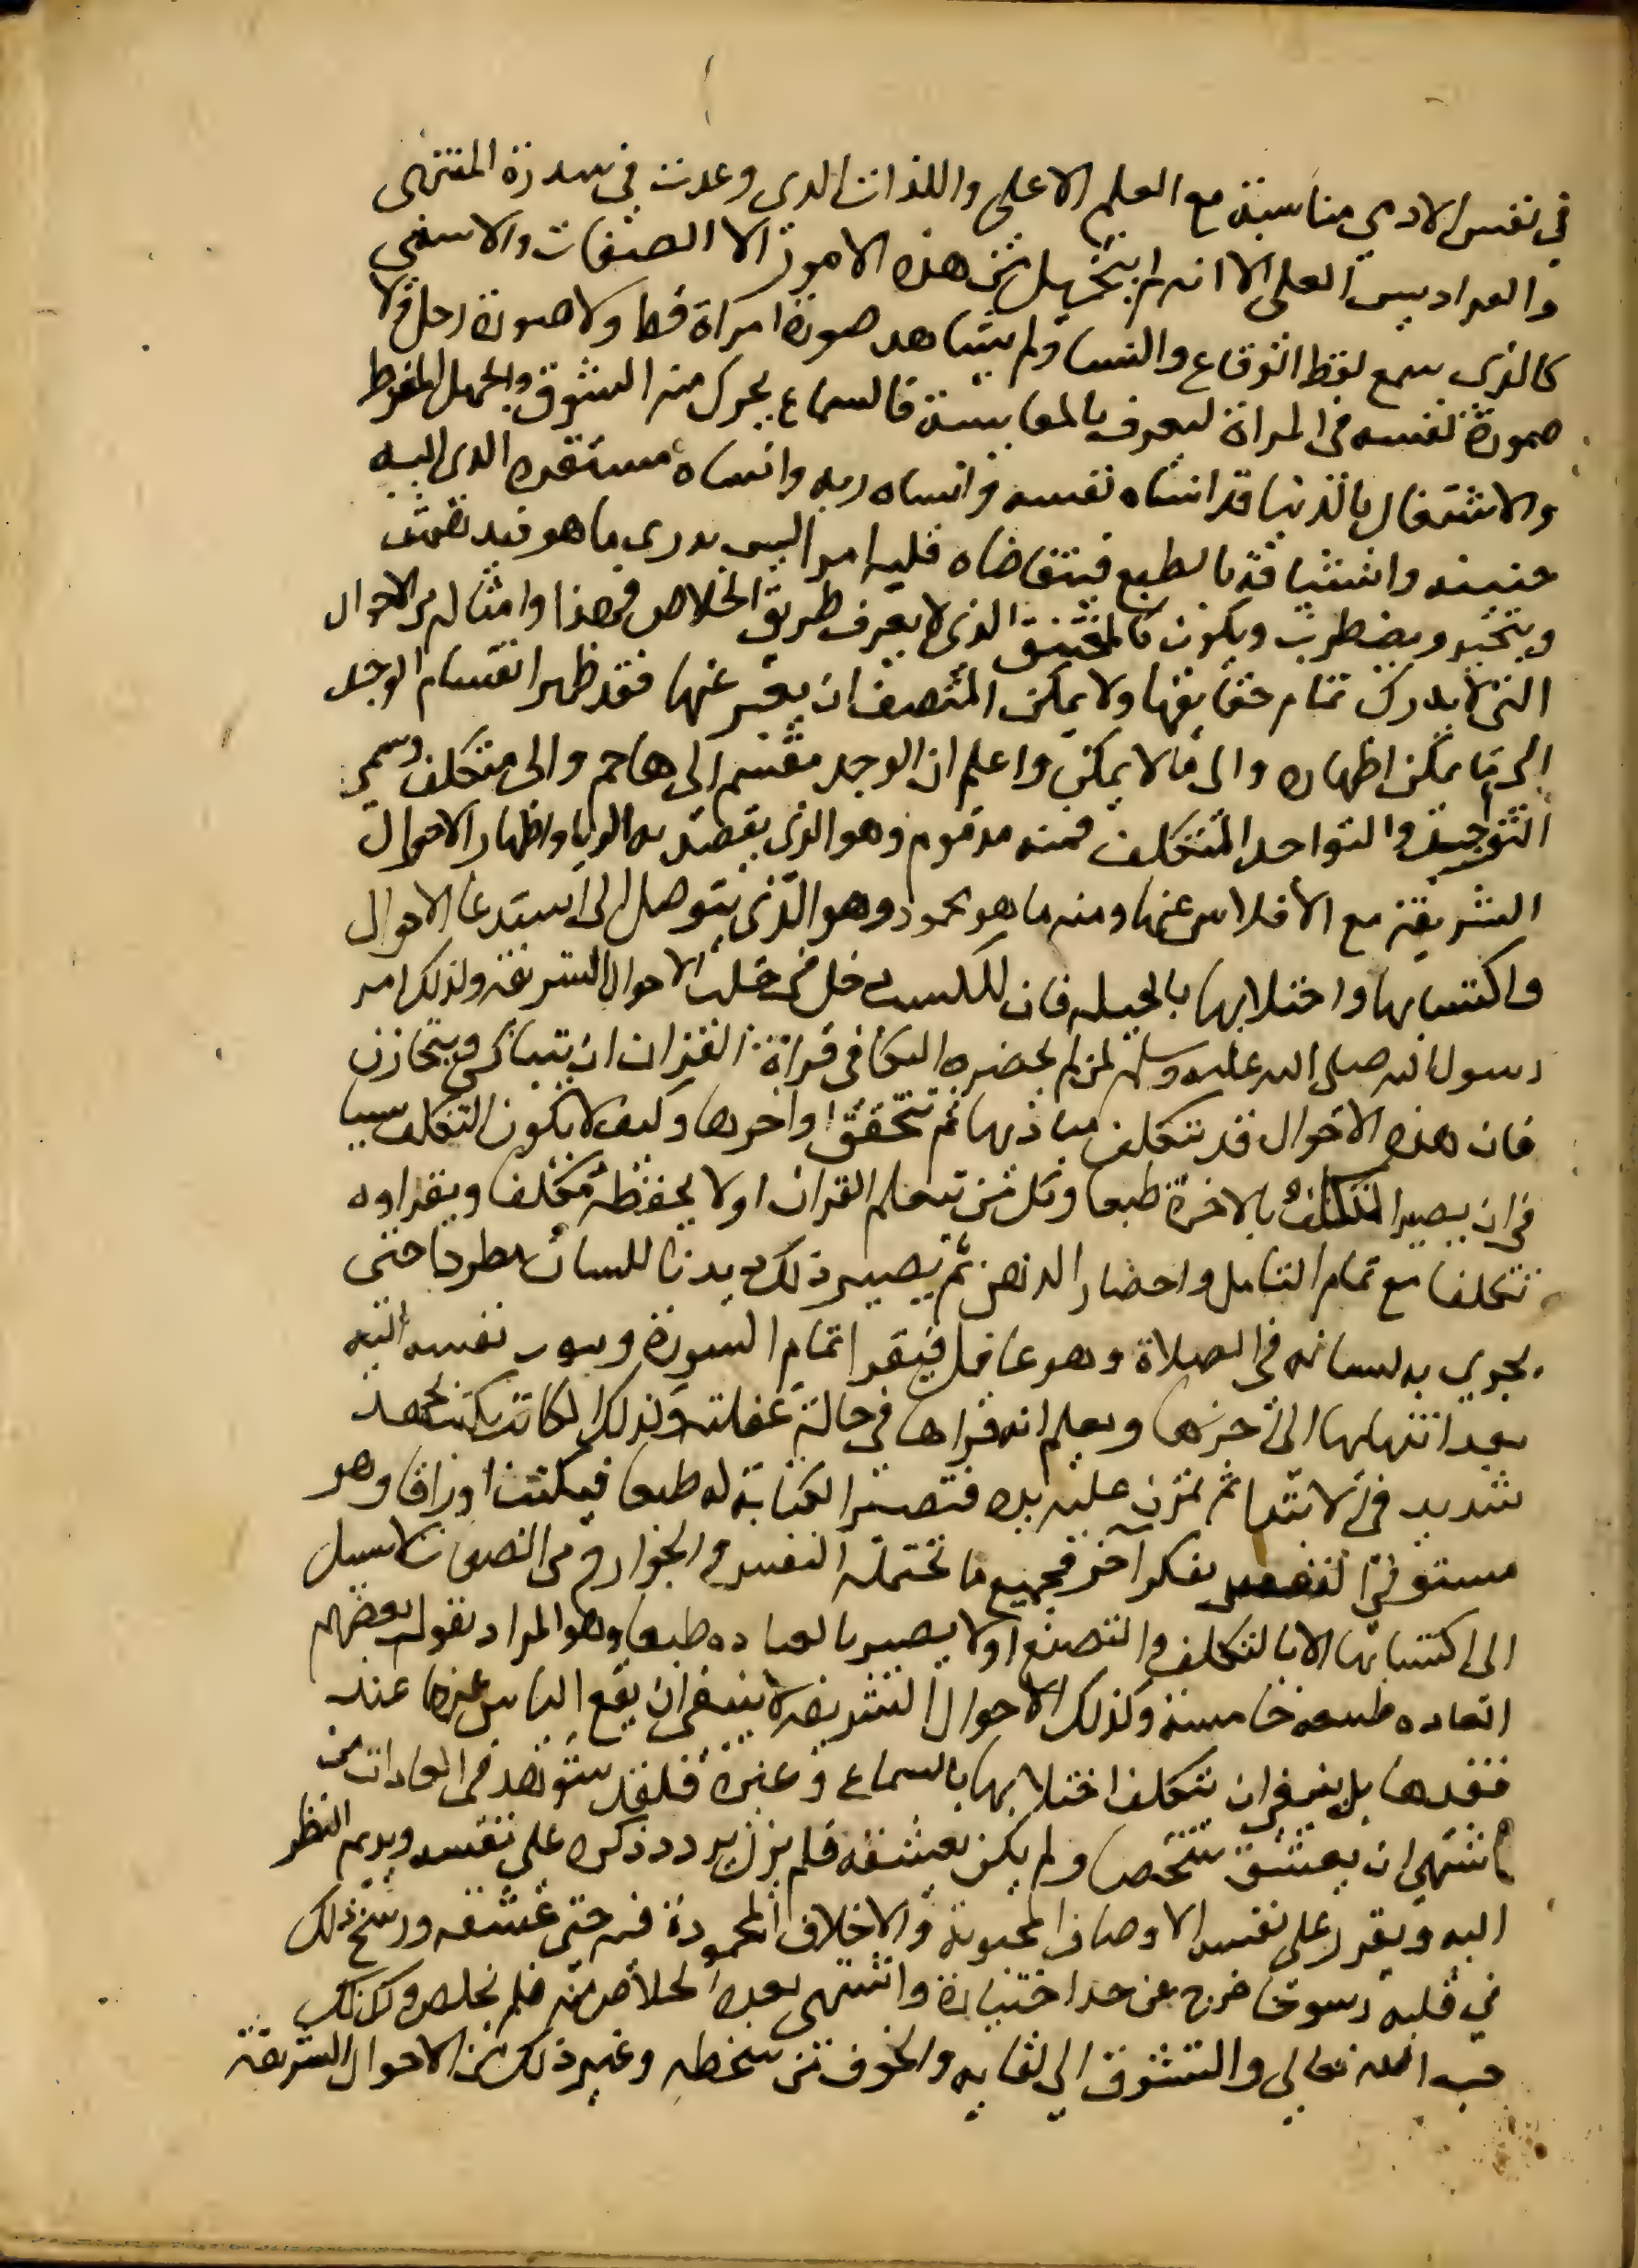 في نفس الادمي مناسبة مع العلم الاعلى واللذات الدى وعدت في سدرة المنتهى
والفراديس العلى الا انه لم يتخيل من هذه الامور الا الصفات والاسمى
كالذي سمع لفظ الوقاع والنسا ولم يشاهد صورة امراة قط ولا صورة رجل ولا
صورة نفسه في المراة ليعرف بالمقايسة فالسماع يحرك منه الشوق والجهل المفرط
والاشتغال بالدنيا قد انساه نفسه وانساه ربه وانساه مستقره الدى اليه
حنينه واشتياقه بالطبع فيتقاضاه قلبه امرا ليس يدري ما هو فيدهش
ويتحير ويضطرب ويكون كالمختنق الذي لا يعرف طريق الخلاص فهذا وامثاله من الاحوال
التي لا يدرك تمام حقايقها ولا يمكن المتصف ان يعبر عنها فقد ظهر انقسام الوجد
الى ما يمكن اظهاره والى ما لا يمكن واعلم ان الوجد مقسم الى هاجم والى متكلف وسمي
التواجد والتواجد المتكلف فمنه مذموم وهو الذي يقصد به الريا واظهار الاحوال
الشريفة مع الافلاس عنها ومنه ما هو محمود وهو الذي يتوصل الى استدعا الاحوال
واكتسابها واجتلابها بالحيله فان للكسب دخل في جلب الاحوال الشريفه ولذلك امر
رسول الله صلى الله عليه وسلم لمن لم يحضره البكا في قراة القران ان يتباكى ويتحازن
فان هذه الاحوال قد تتكلف مباديها ثم تتحقق اواخرها وكيف لا يكون التكلف سببا
في ان يصير المتكلف بالاخرة طبعا وكل من تعلم القران اولا يحفظه تكلفا ويقراوه
تكلفا مع تمام التامل واحضار الذهن ثم يصير ذلك ديدنا للسان مطردا حتى
يجري به لسانه في الصلاة وهو غافل فيقرا تمام السورة ويثوب نفسه اليه
بعد انتهايها الى اخرها ويعلم انه قراها في حالة غفلته وكذلك الكاتب يكتب بجهد
شديد في الابتدا ثم تمرن عليه يده فتصير الكتابة له طبعا فيكتب اوراقا وهو
مستوفي النفس بفكر آخر فجميع ما تحتمله النفس والجوارح من الصفات لا سبيل
الى اكتسابها الا بالتكلف والتصنع اولا يصير بالعاده طبعا وهو المراد بقول بعضهم
العاده طبيعه خامسة وكذلك الاحوال الشريفه لا ينبغي ان يقع الياس عنها عند
فقدها بل ينبغي ان تتكلف اجتلابها بالسماع وغيره فلقد شوهد في العادات من
اشتهى ان يعشق شخصا ولم يكن يعشقه فلم يزل يردد ذكره على نفسه ويديم النظر
اليه ويقرر على نفسه الاوصاف المحبوبة والاخلاق المحمودة فيه حتى عشقه ورسخ ذلك
في قلبه رسوخا خرج عن حد اختياره واشتهى بعده الخلاص منه فلم يخلص وكذلك
حب الله تعالى والتشوق الى لقايه والخوف من سخطه وغير ذلك من الاحوال الشريفة